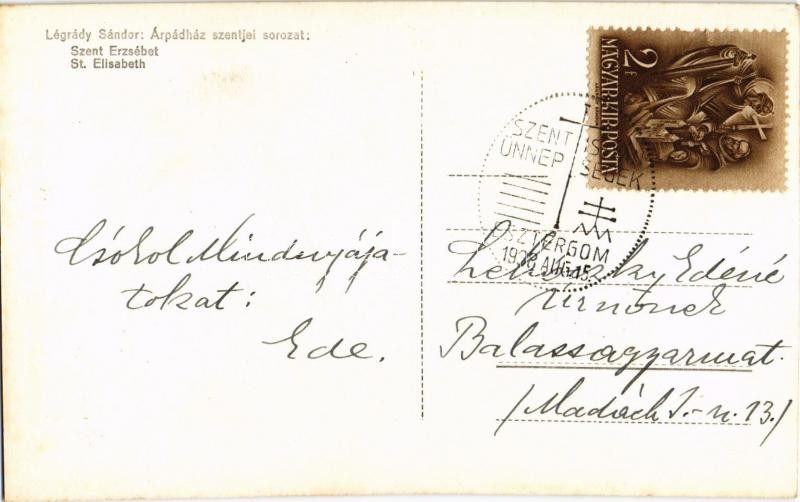 Légrády Sándor: Árpádház szentjei sorozat:
Szent Erzsébet
St. Elisabeth
2f
MAGYAR·KIR·POSTA
SZENT IS
ÜNNEP SÉGEK
ESZTERGOM
1938 AUG 15
Csókol Mindnyája-
tokat:
Ede.
Edéné
Úrnőnek
Balassagyarmat.
/Madách I.-u. 13./